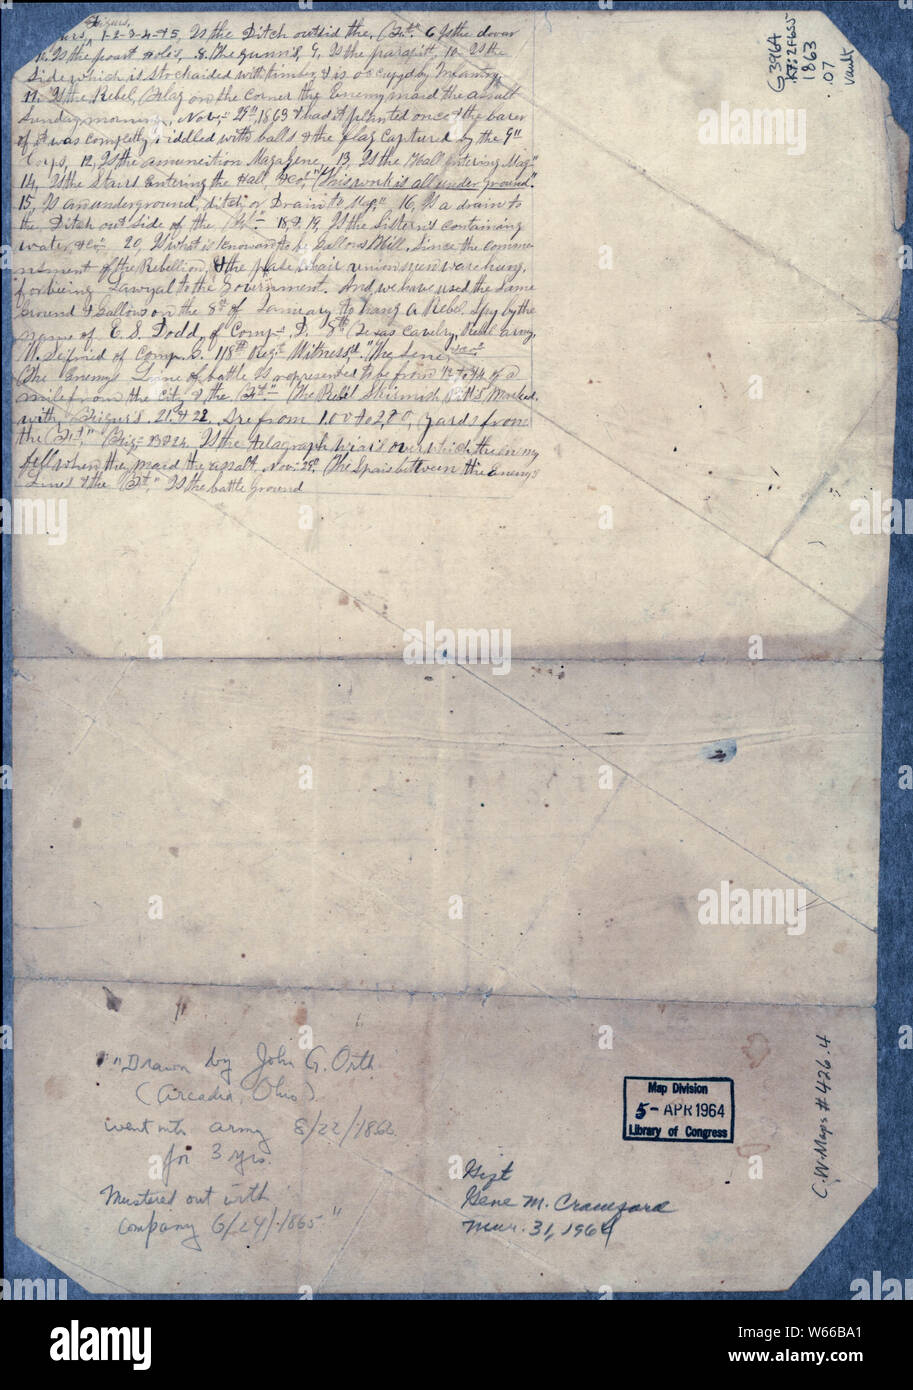 Figurs,
urs, 1-2-3-4-&5, Is the Ditch outside the, Brt" 6 Is the dover
Is the poart holes, 8. The gunn's, 9, Is the parapitt, 10 Is the
Side which is stockaided with timber, & is occupyd by Infantry
11, Is the Rebel, Flag on the corner the Enemy maid the assalt
Sunday, morning, Nov,- 29th, 1863 & had it planted once & the barer
of it was completly riddled with balls, & the flag captured by the 9th
Corps, 12, Is the amuneition Magazene, 13, Is the Hall entering Mag"
14, Is the Stairs Entering the Hall, &co, "This work is all under ground".
15, Is an underground, ditch or Drain to Mag," 16, Is a drain to
the, Ditch out side of the Frt"- 18, & 19, Is the Sistern's containing
water, &co- 20, Is what is knowan to be Gallows Hill, Since the comme-
nsment of the Rebellion, & the plase whair union men ware hung,
for being Lawyal to the Government. And we have used the same
Ground & Gallows on the 8th of January to hang a Rebel Spy by the
name of E. S. Dodd, of Comp- D. 8th Texas Cavelry, Rebel army,
M. Seifried of Comp. G. 118th Regt Witness,d "The Sene,
(The Enemys Line of battle Is represented to be from 1/2 to 3/4 of a
mile from the City & the Frt"- (The Rebl Skirmish Pitt's Marked
with Figur's. 21, & 22, Are from 100 to 200, yards from
the Frt," Fig= 23 & 24, Is the telagraph wiair over which the enemy
fell when they maid the assalt, Nov: 29th (The Spais between the Enemys
Lines & the Frt," Is the battle ground
G3964
.K7:2F6S5
1863
.07
Vault
"Drawn by John G. Orth
(Arcadia, Ohio)
went into army 8/22/1862
for 3 yrs.
Mustered out with
company 6/24/1865"
Map Division
5 - APR 1964
Library of Congress
Gift
Gene M. Crawford
Mar. 31, 1964
C.W. Maps #426.4
alamy
alamy
Image ID: W66BA1
www.alamy.com